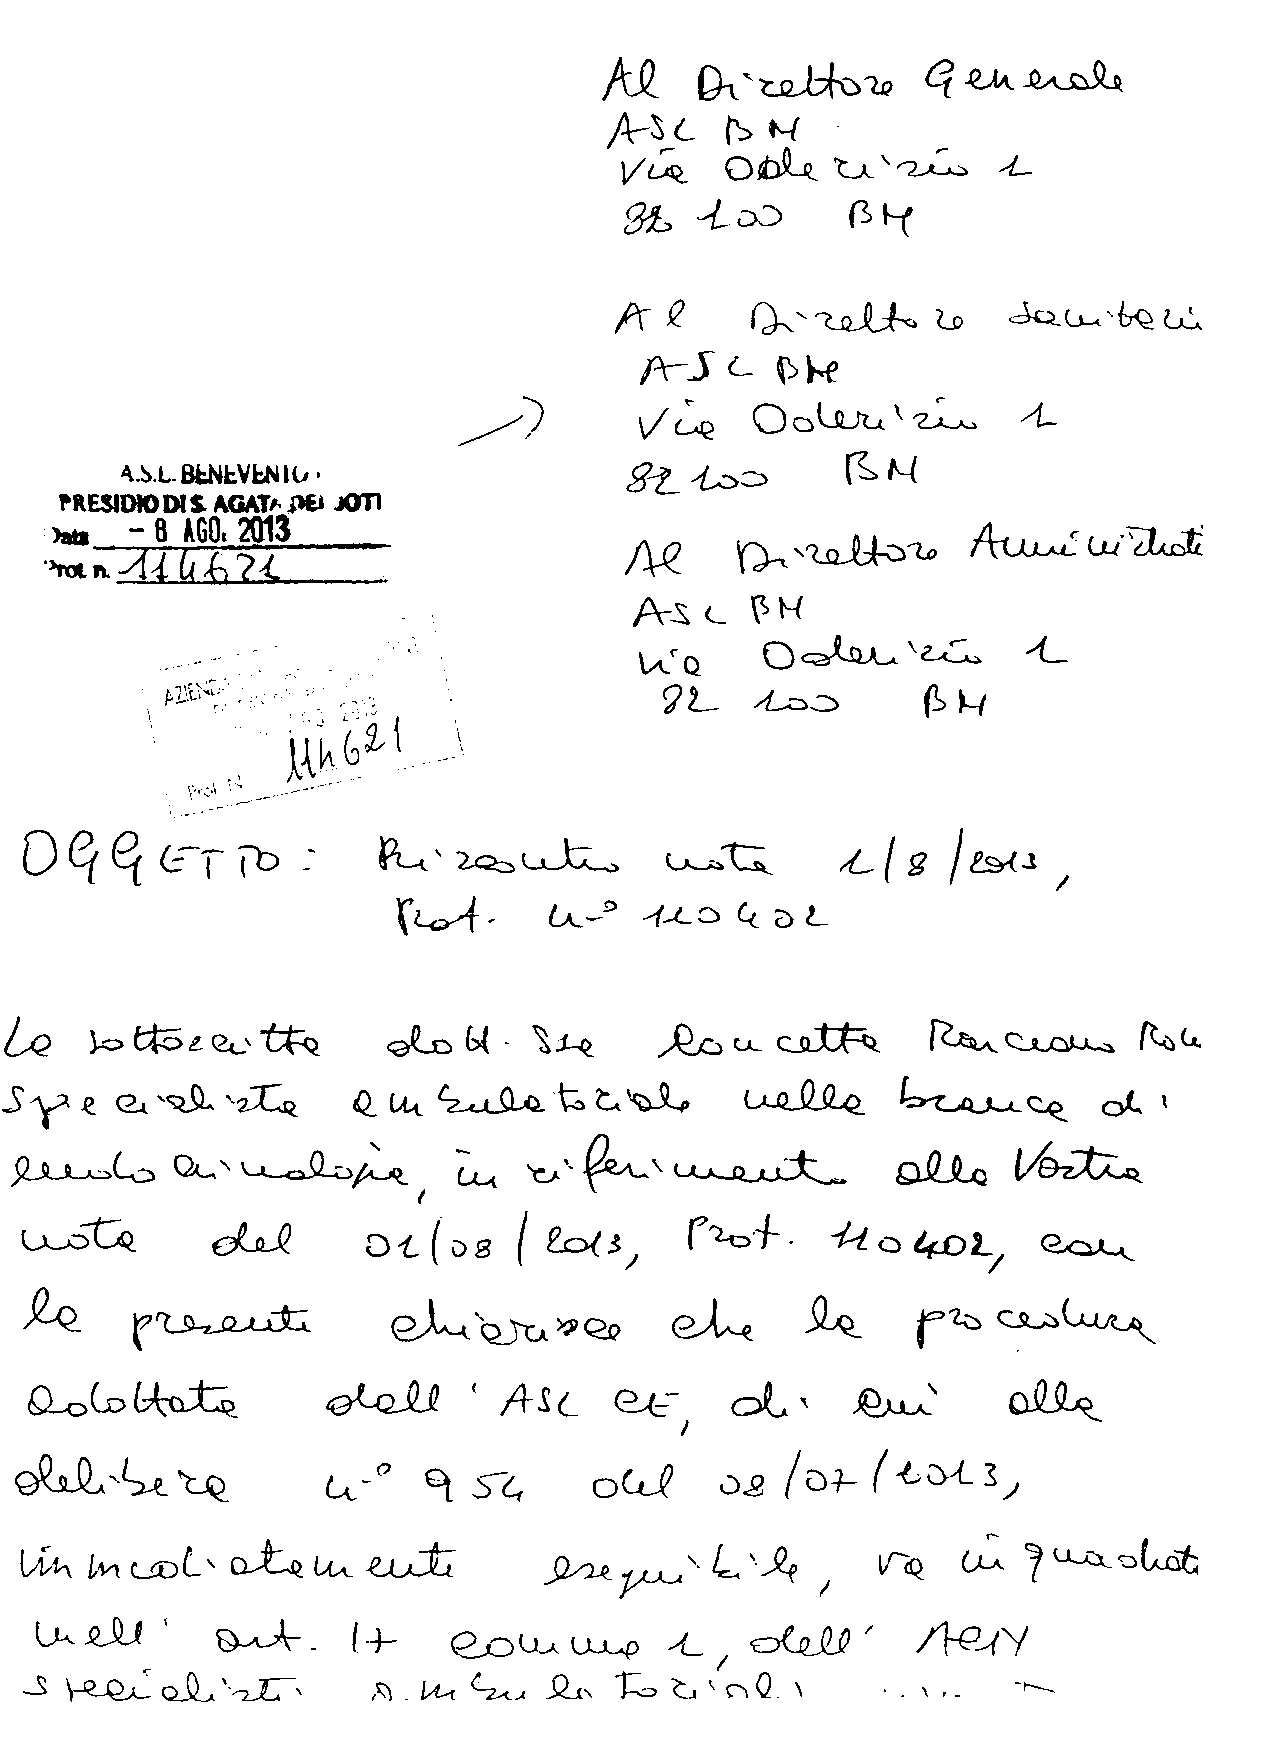 Al Direttore Generale
ASL BN
Via Oderisio 1
82100 BN
Al Direttore Sanitari
ASL BN
Via Oderisio 1
82100 BN
A.S.L. BENEVENTO
PRESIDIO DI S. AGATA DEI GOTI
Data - 8 AGO. 2013
Prot n. 114621
Al Direttore Amministrati
ASL BN
Via Oderisio 1
82100 BN
AZIEND
2013
Prot N 114621
OGGETTO: Riscontro nota 1/8/2013,
Prot. n° 110402
La sottoscritta dott.ssa Concetta
specialista ambulatoriale nella branca di
endocrinologia, in riferimento alla Vostra
nota del 01/08/2013, Prot. 110402, con
la presente chiarisco che la procedura
adottata dall'ASL CE, di cui alla
delibera n° 954 del 08/07/2013,
immediatamente eseguibile, va inquadrat
nell'art. 17 comma 1, dell'ACN
specialisti ambulatoriali